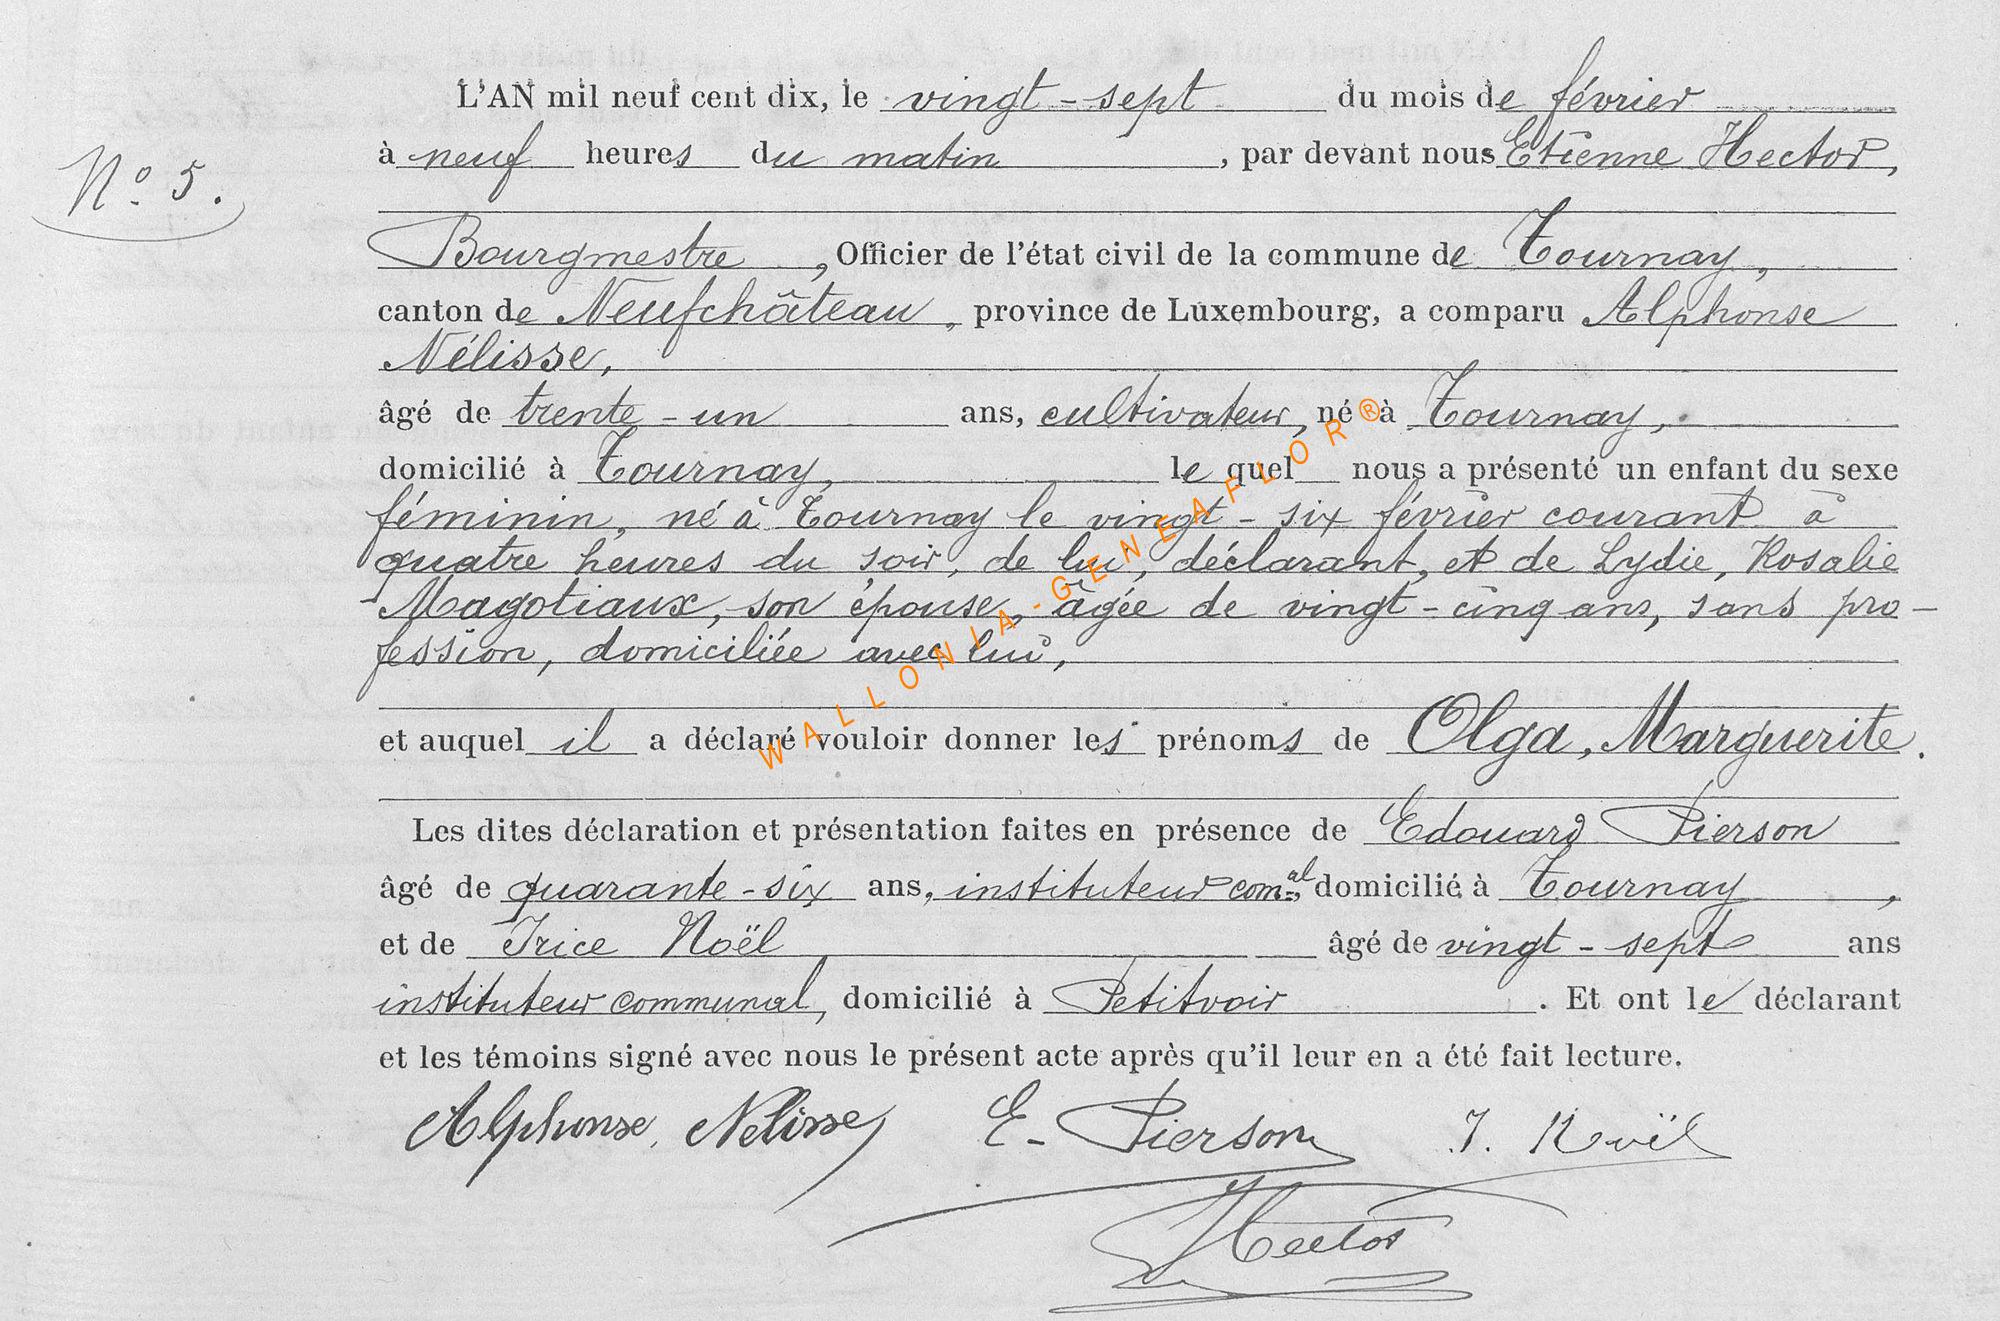 L'AN mil neuf cent dix, le vingt-sept du mois de février
N° 5.
à neuf heures du matin, par devant nous Etienne Hector,
Bourgmestre, Officier de l'état civil de la commune de Tournay,
canton de Neufchâteau, province de Luxembourg, a comparu Alphonse
Nélisse,
âgé de trente-un ans, cultivateur, né à Tournay,
domicilié à Tournay, le quel nous a présenté un enfant du sexe
féminin, né à Tournay le vingt-six février courant à
quatre heures du soir, de lui, déclarant, et de Lydie, Rosalie
Magotiaux, son épouse, âgée de vingt-cinq ans, sans pro-
fession, domiciliée avec lui,
et auquel il a déclaré vouloir donner les prénoms de Olga, Marguerite.
Les dites déclaration et présentation faites en présence de Edouard Pierson
âgé de quarante-six ans, instituteur com.al, domicilié à Tournay,
et de Irice Noël âgé de vingt-sept ans
instituteur communal, domicilié à Petitvoir. Et ont le déclarant
et les témoins signé avec nous le présent acte après qu'il leur en a été fait lecture.
Alphonse Nelisse E. Pierson I. Noël
Hector
WALLONIA-GENEAFLOR®